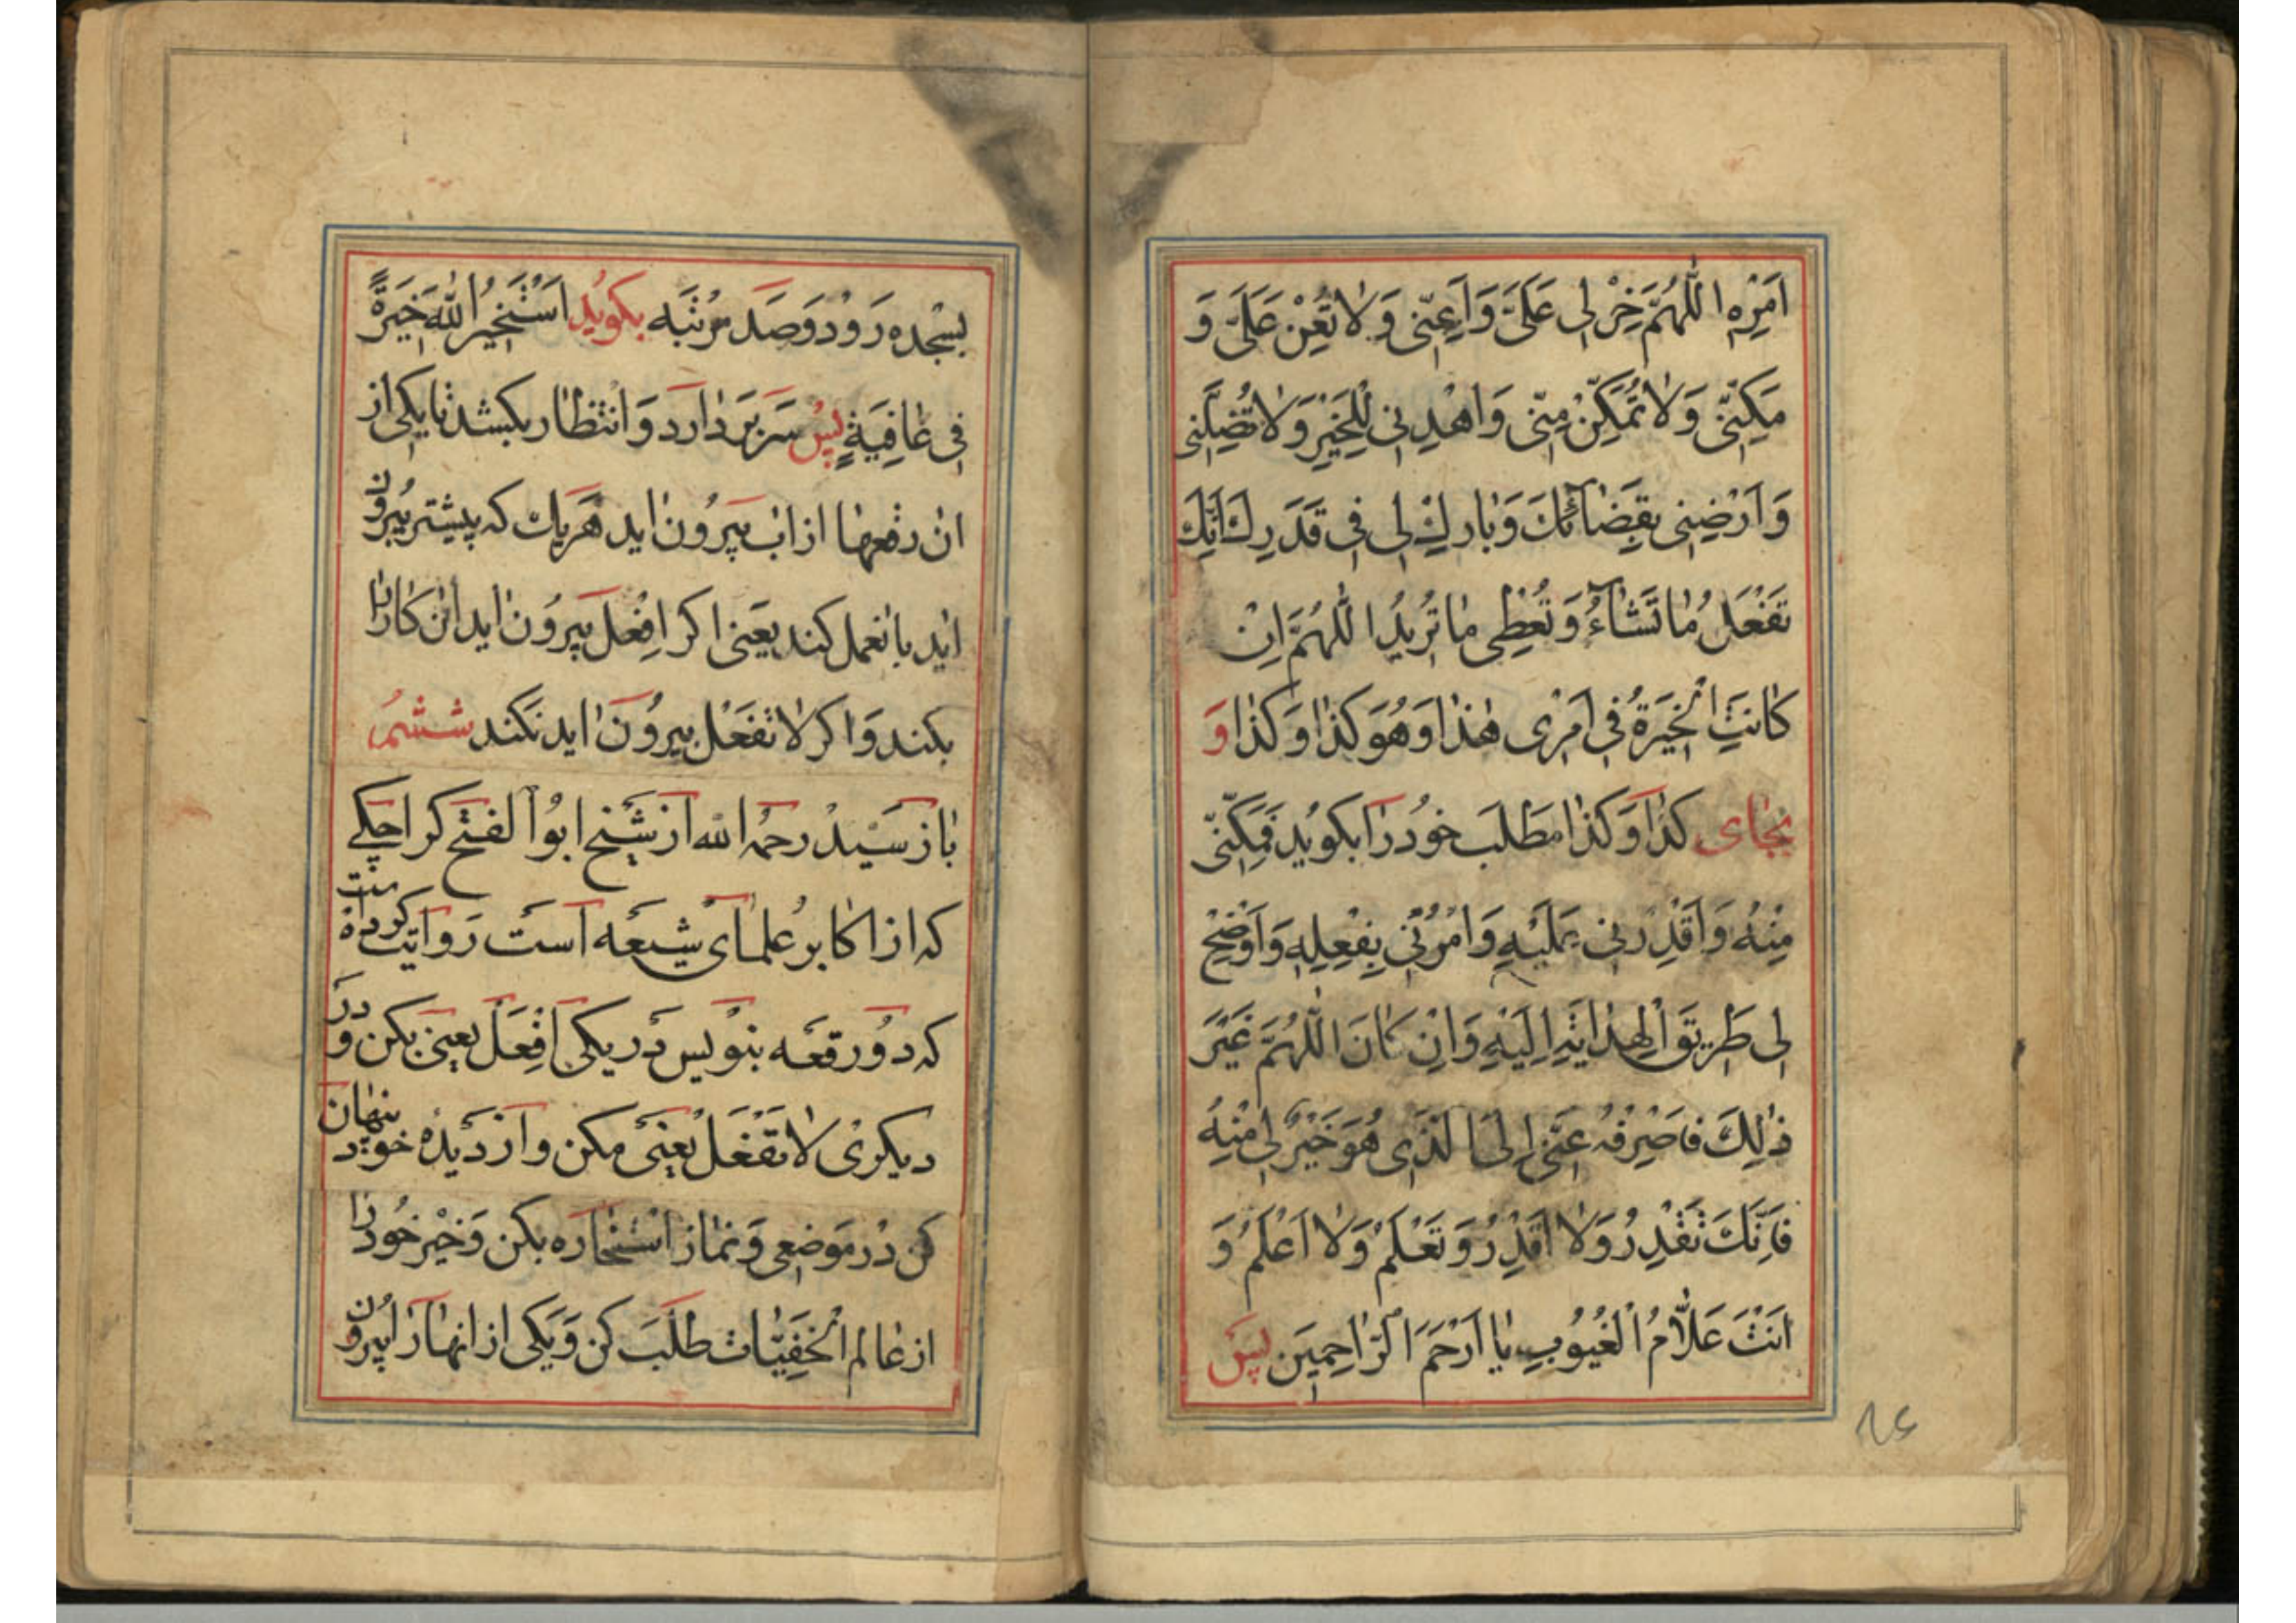 اَمْرِهِ اَللّٰهُمَّ خِرْ لِی عَلَیَّ وَاَعِنّی وَلاٰ تُعِنْ عَلَیَّ وَ
مَکِنّی وَلاٰ تُمَکِّنْ مِنّی وَاهْدِنِی لِلْخَیْرِ وَلاٰ تُضِلَّنِی
وَاَرْضِنِی بِقَضٰآئِکَ وَبٰارِکْ لِی فِی قَدَرِکَ اِنَّکَ
تَفْعَلُ مٰا تَشٰآءُ وَتُعْطِی مٰا تُرِیدُ اَللّٰهُمَّ اِنْ
کٰانَتِ الْخِیَرَةُ فِی اَمْرِی هٰذٰا وَهُوَ کَذٰا وَکَذٰا وَ
بجٰای کَذٰا وَکَذٰا مَطْلَب خُود رٰا بکوید فَمَکِّنّی
مِنْهُ وَاَقْدِرْنِی عَلَیْهِ وَأْمُرْنِی بِفِعْلِهِ وَاَوْضِحْ
لِی طَرِیقَ الْهِدٰایَةِ اِلَیْهِ وَاِنْ کٰانَ اللّٰهُمَّ غَیْرَ
ذٰلِکَ فَاصْرِفْهُ عَنّی اِلَی الَّذِی هُوَ خَیْرٌ لِی مِنْهُ
فَاِنَّکَ تَقْدِرُ وَلاٰ اَقْدِرُ وَتَعْلَمُ وَلاٰ اَعْلَمُ وَ
اَنْتَ عَلاّٰمُ الْغُیُوبِ یٰا اَرْحَمَ الرّٰاحِمِینَ پس
بسْجده رَوْد وَصَد مرْتبَه بکوید اَسْتَخیرُ اللّٰهَ خِیَرَةً
فِی عٰافِیَةٍ پس سَر بَردٰارد وَانْتظٰار بکشد تٰا یکی از
ان رقعهٰا از اب بیرُون اید هَریک که پیشتر بیرُون
اٰید باٰن عمل کند یعَنی اکر اِفْعَل بیرُون اید ان کٰار رٰا
بکند وَاکر لاٰتَفْعَل بیرُون اید نَکند ششم
بٰاز سَیّد رحمه الله از شَیْخ ابوُ الفتْح کراجکی
که از اکٰابر عُلمٰای شیعَه است رَوایت کرده است
که دُو رقعَه بنْویس در یکی اِفْعَل یعنی بکن وَ در
دیکری لاٰتَفْعَل یعنی مکن واز دیدۀ خود پنهان
کن دَر مَوضعی وَنمٰاز اسْتخٰاره بکن وَخَیْر خُود رٰا
از عٰالم الْخَفِیّٰات طلَب کن وَیکی از انهٰا رٰا بیرُون
۸۶